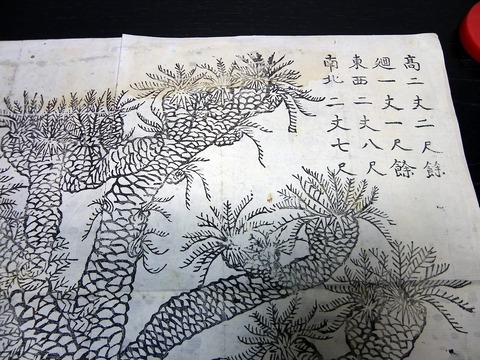 高二丈二尺餘
廻一丈一尺餘
東西二丈八尺
南北二丈七尺